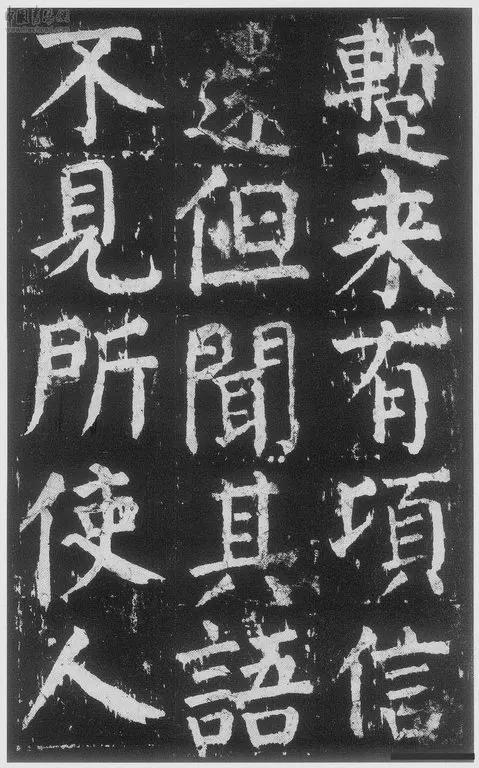 蹔来有項信
還但聞其語
不見所使人